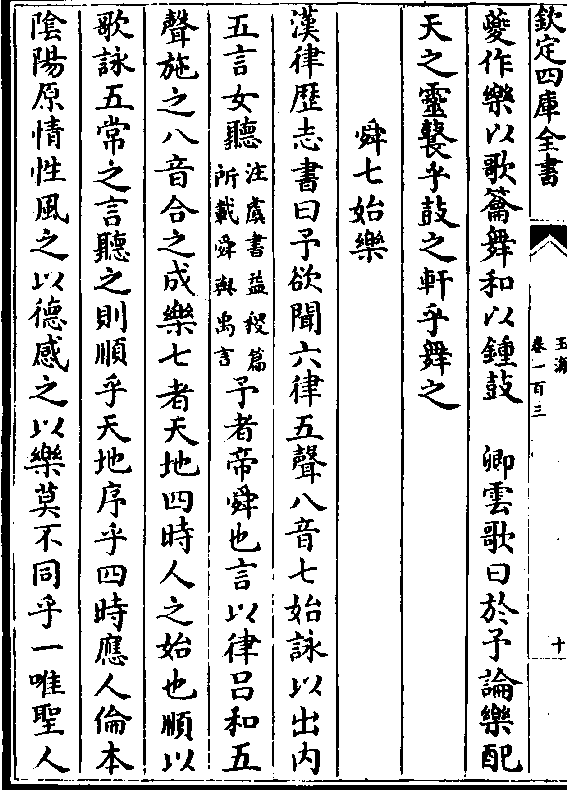 欽定四庫全書
玉海
卷一百三
十
夔作樂以歌籥舞和以鍾鼓　卿雲歌曰於予論樂配
天之靈襲乎鼓之軒乎舞之
舜七始樂
漢律歴志書曰予欲聞六律五聲八音七始詠以出内
五言女聽注虞書益稷篇所載舜與禹言予者帝舜也言以律吕和五
聲施之八音合之成樂七者天地四時人之始也順以
歌詠五常之言聽之則順乎天地序乎四時應人倫本
隂陽原情性風之以德感之以樂莫不同乎一唯聖人